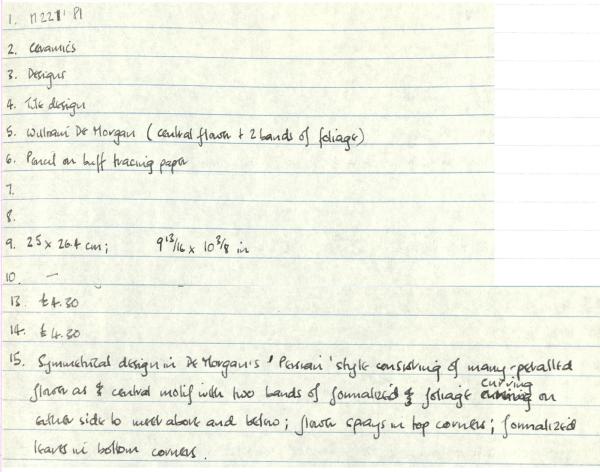 1. M221' P1
2. Ceramics
3. Designs
4. Tile design
5. William De Morgan (central flower + 2 bands of foliage)
6. Pencil on buff tracing paper
7.
8.
9. 25 x 26.4 cm; 9 13/16 x 10 3/8 in
10. —
13. £4.30
14. £4.30
15. Symmetrical design in De Morgan's 'Persian' style consisting of many-petalled
flower as central motif with two bands of formalized foliage curving on
either side to meet above and below; flower sprays in top corners; formalized
leaves in bottom corners.